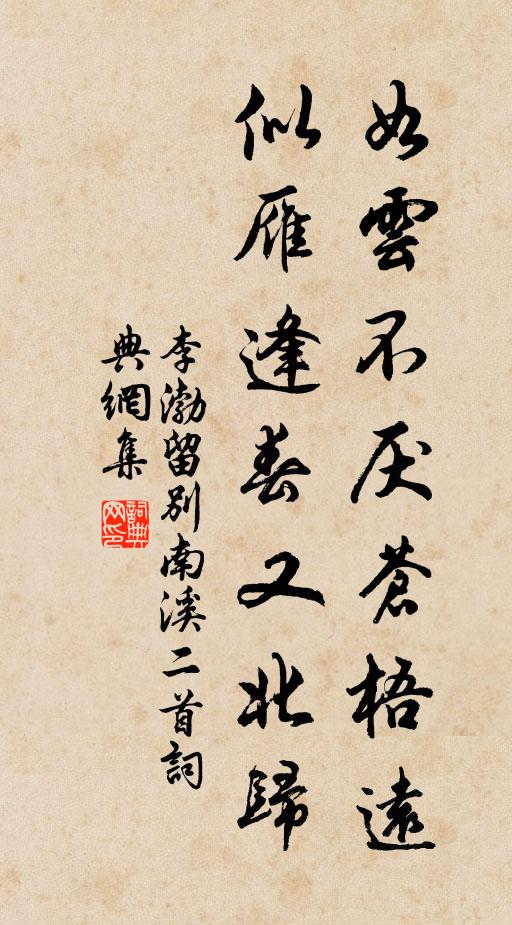 如雲不厌蒼梧遠
似雁逢春又北歸
李渤留別南溪二首詞
典網集
詞典網印